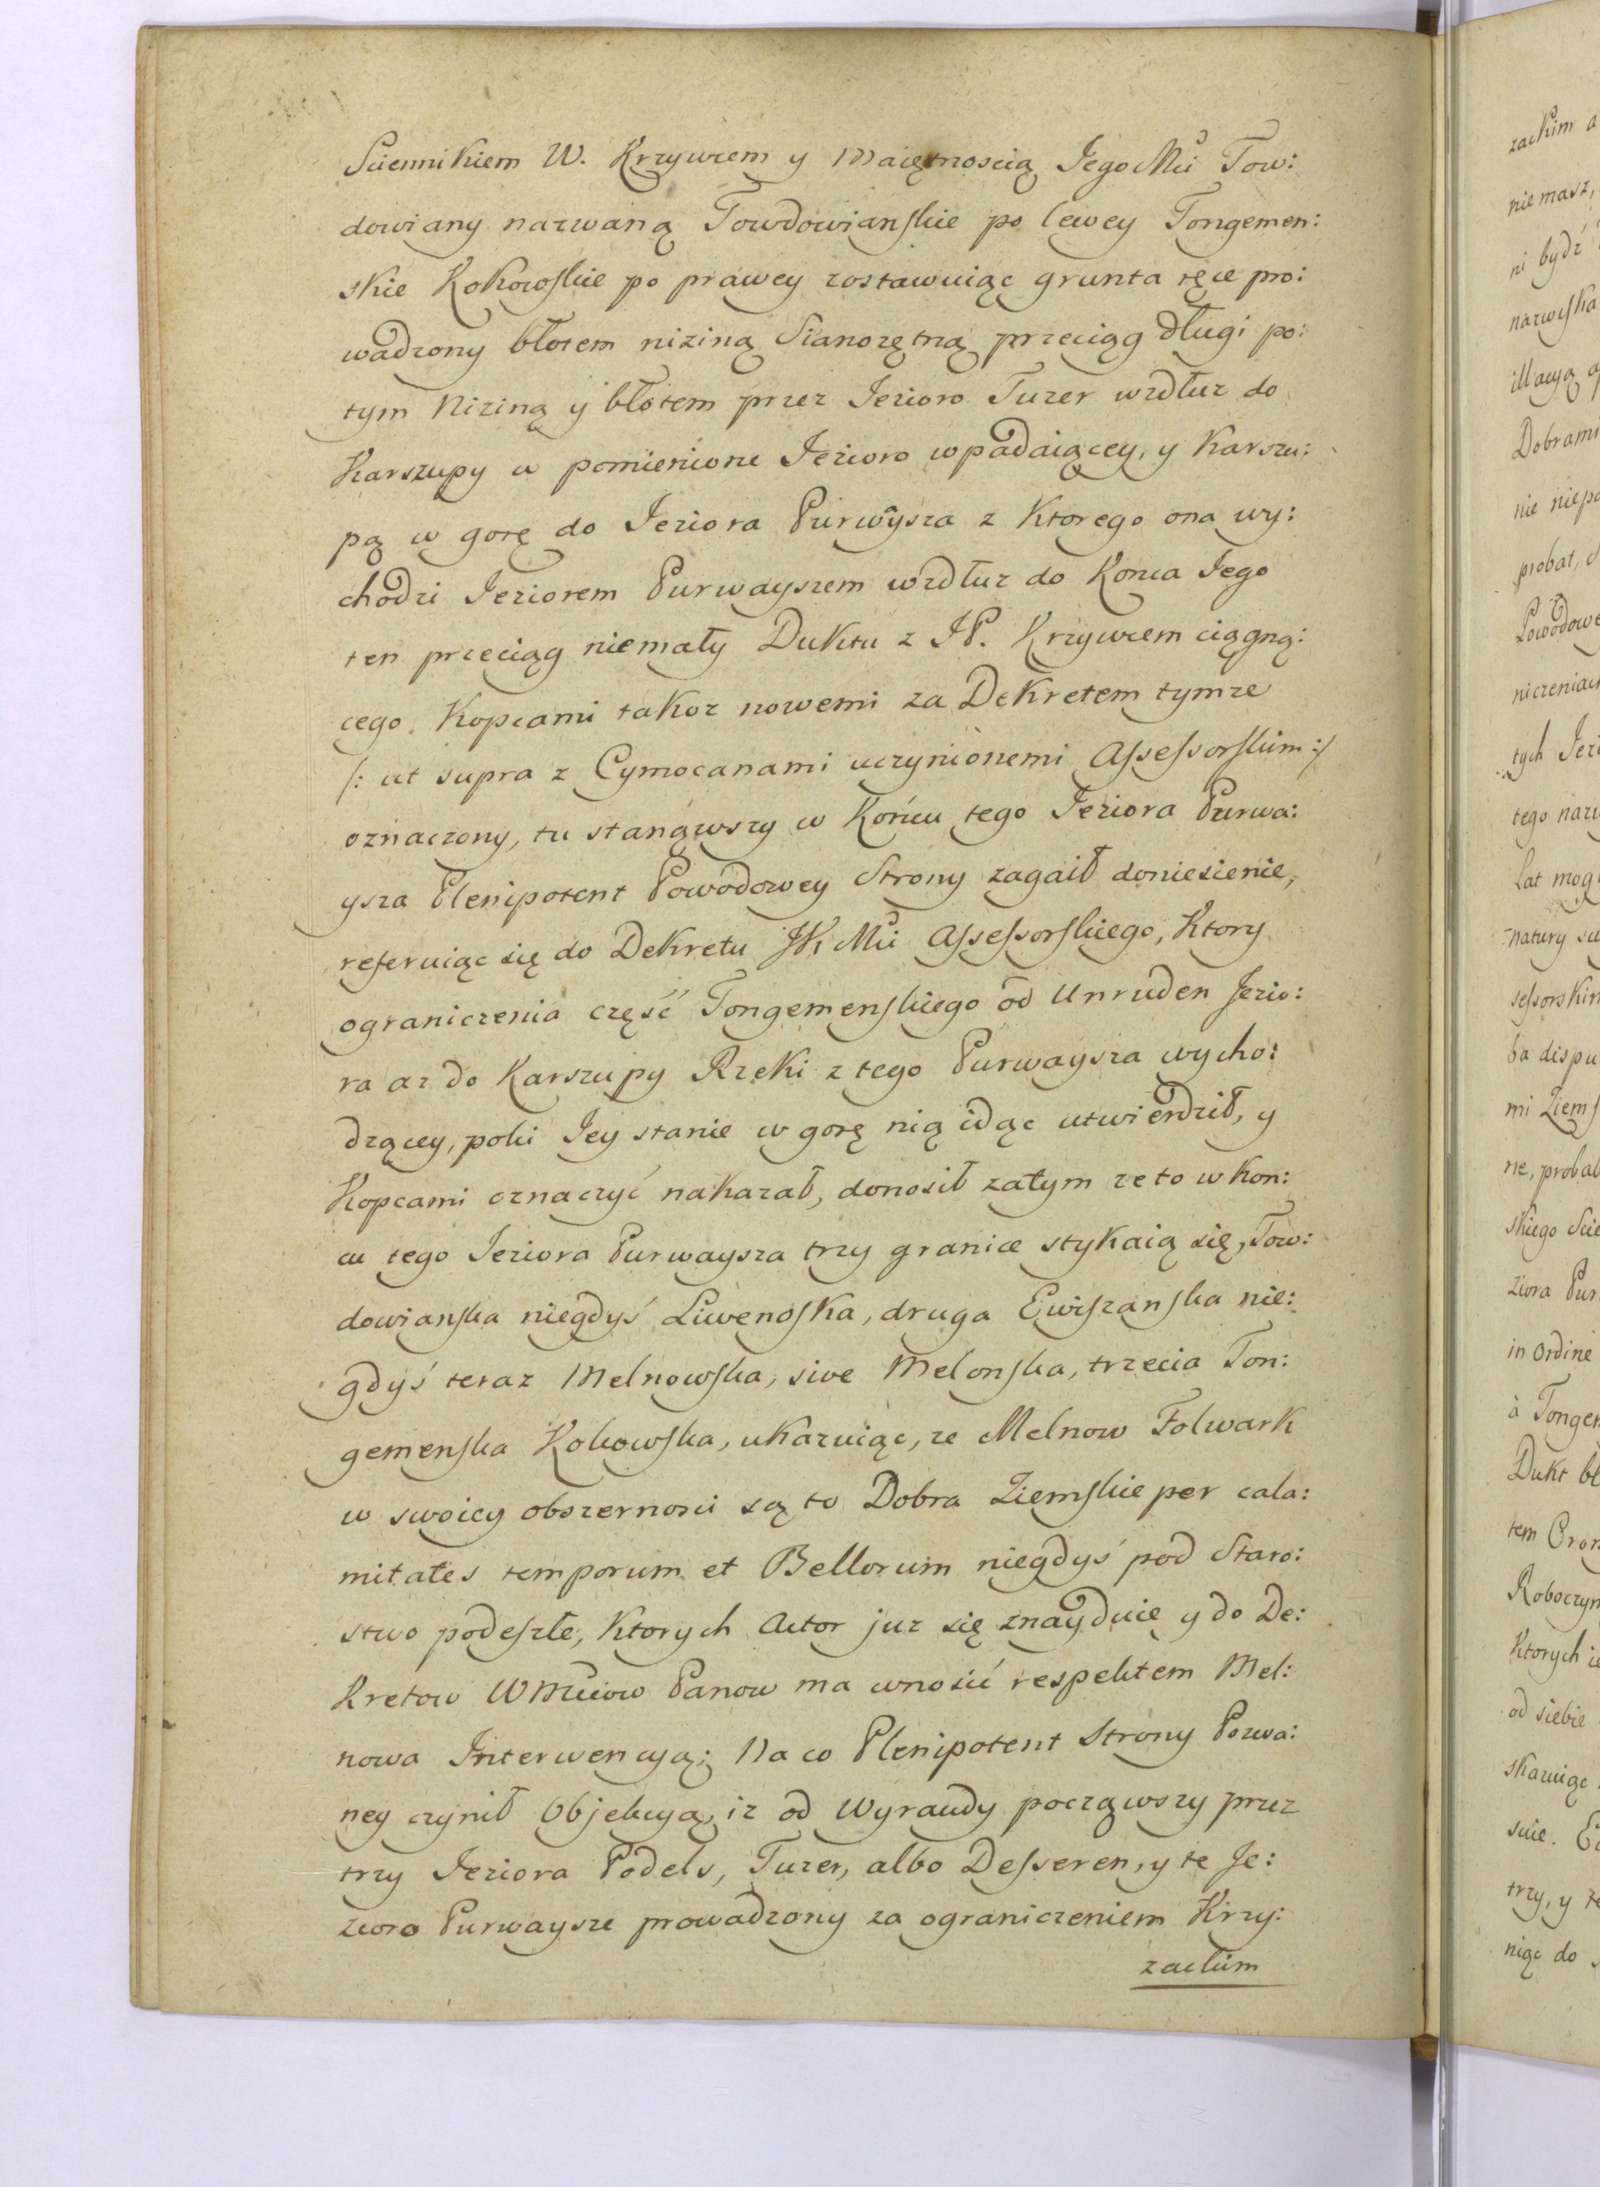 Sciennikiem W. Krzywcem y Maiętnoscią Jego Mći Tow:
dowiany nazwaną Towdowianskie po lewey Tongemen:
skie Kokowskie po prawey zostawuiąc grunta ręce pro:
wadzony błotem niziną Sianozętną przeciąg długi po:
tym Niziną y błotem przez Jezioro Turer wzdłuz do
Karszupy w pomienione Jezioro wpadaiącey, y Karszu:
pą w gorę do Jeziora Purwaysza z Ktorego ona wy:
chodzi Jeziorem Purwayszem wzdłuz do Konca Jego
ten przeciąg niemały Duktu z JP. Krzywcem ciągną:
cego. Kopcami takoz nowemi za Dekretem tymze
/: ut supra z Cymocanami uczynionemi Assessorskim :/
oznaczony, tu stanąwszy w Końcu tego Jeziora Purwa:
ysza Plenipotent Powodowey Strony zagaił doniesienie,
referuiąc się do Dekretu JK Mći Assessorskiego, Ktory
ograniczenia część Tongemenskiego od Unruden Jezio:
ra az do Karszupy Rzeki z tego Purwaysza wycho:
dzącey, poki Jey stanie w gorę nią idąc utwierdził, y
Kopcami oznaczyć nakazał, donosił zatym ze to w kon:
cu tego Jeziora Purwaysza trzy granice stykaią się, Tow:
dowianska niegdyś Liwenoska, druga Ewiszanska nie:
gdyś teraz Melnowska, sive Melonska, trzecia Ton:
gemenska Kokowska, ukazuiąc, ze Melnow Folwark
w swoiey obszernosci są to Dobra Ziemskie per cala:
mitates temporum et Bellorum niegdyś pod Staro:
stwo podeszłe, Ktorych Actor juz się znayduie y do De:
kretow WMćiow Panow ma wnosić respektem Mel:
nowa Interwencyą; Na co Plenipotent Strony Pozwa:
ney czynił Objekcyą, iz od Wyraudy począwszy przez
trzy Jeziora Podels, Turer, albo Desseren, y te Je:
zioro Purwaysze prowadzony za ograniczeniem Krzy:
zackim
zackim a
nie masz,
ni bydź
nazwiska
illacyą
Dobrami
nie
probat,
Powodowe
niczeniach
tych Jezi
tego
Lat mog
natury su
sessorskim
ba dispu
mi Ziems
ne, probat
skiego Scie
ziora Pur
in Ordine
à Tongem
Dukt bł
tem
Roboczym
Ktorych
od siebie
skazuiąc
trzy, y
niąc do